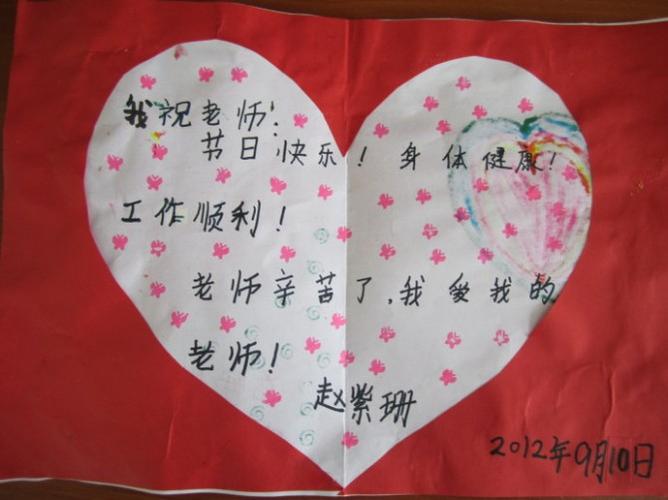 我祝老师:
节日快乐!身体健康!
工作顺利!
老师辛苦了,我爱我的
老师!
赵紫珊
2012年9月10日